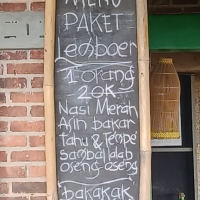 MENU
PAKET
Lemboer
1 orang
20K
Nasi Merah
Asin bakar
tahu & tempe
sambal lalab
oseng-oseng
bakakak